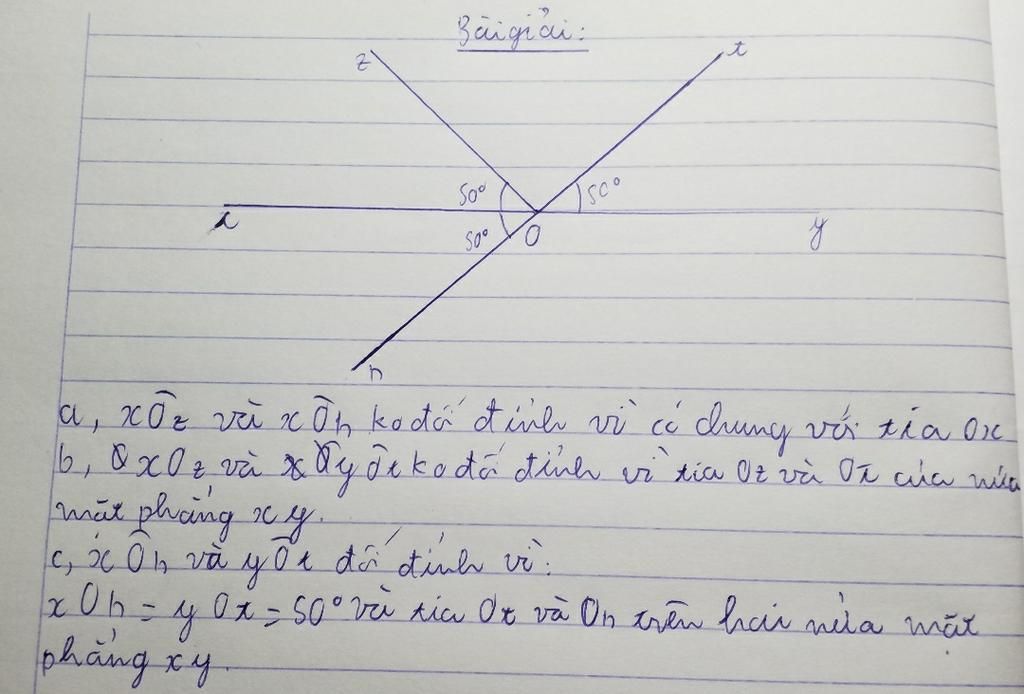 Bài giải:
z
t
50°
50°
x
50°
O
y
n
a, xÔz và xÔn ko đối đỉnh vì có chung với tia Ox
b, xOz và yÔt ko đối đỉnh vì tia Oz và Ot của nửa
mặt phẳng xy.
c, xÔn và yÔt đối đỉnh vì:
xOn = yOt = 50° và tia Ot và On trên hai nửa mặt
phẳng xy.